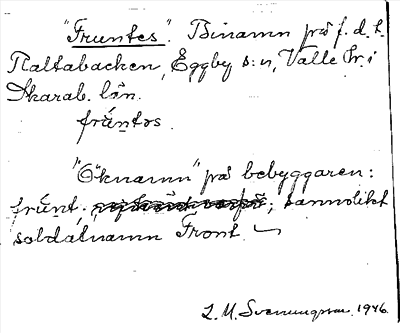 "Fruntes". Binamn på f. d. t.
Raltabacken, Eggby s:n, Valle hr i
Skarab. län.
frúntəs.
"Öknamn" på bebyggaren:
frúnt, ; sannolikt
soldatnamn Front.
L. M. Svenungsson 1946.